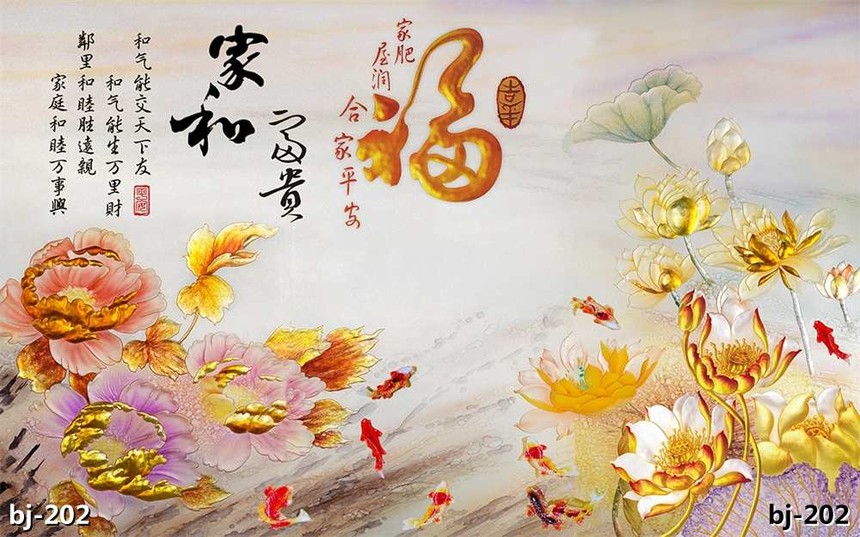 和气能交天下友
和气能生万里財
鄰里和睦胜遠親
家庭和睦万事興
家和
富貴
家肥
屋润
合家平安
福
bj-202
bj-202